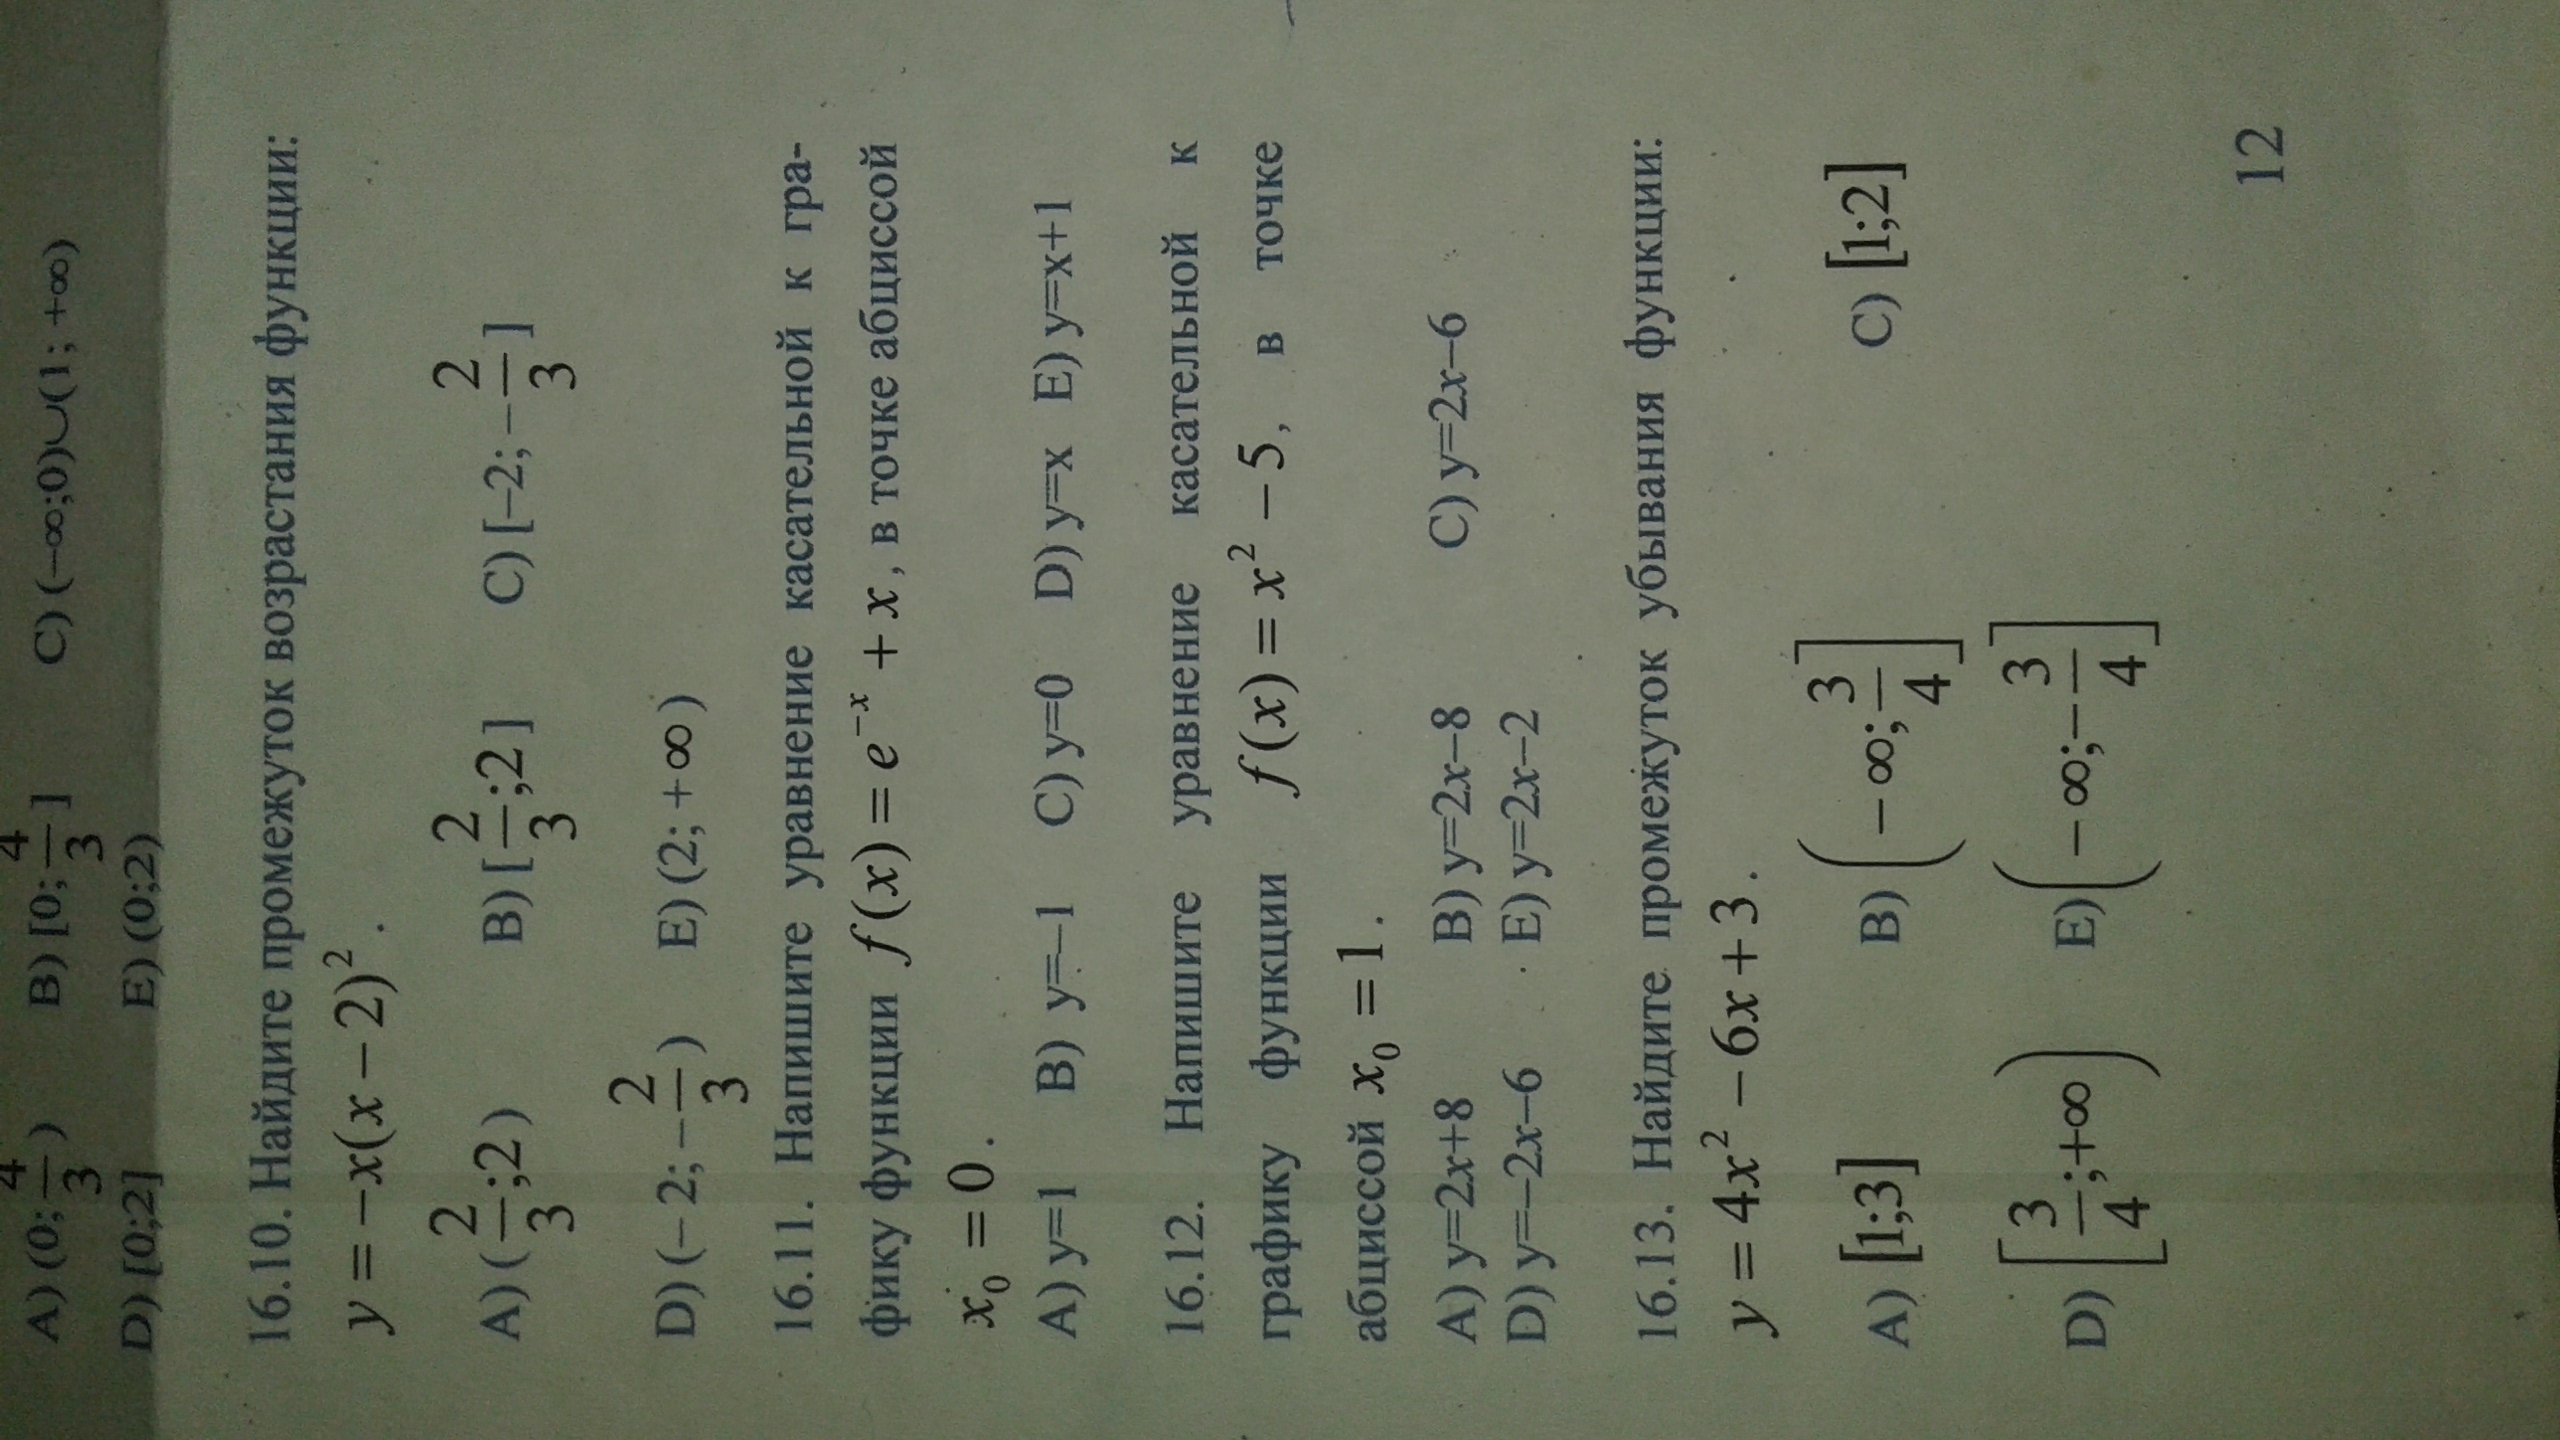 A) (0; 4/3)   B) [0; 4/3]   C) (−∞;0)∪(1; +∞)
D) [0;2]   E) (0;2)
16.10. Найдите промежуток возрастания функции:
y = −x(x − 2)².
A) (2/3;2)   B) [2/3;2]   C) [−2;−2/3]
D) (−2;−2/3)   E) (2;+∞)
16.11. Напишите уравнение касательной к гра-
фику функции f(x) = e⁻ˣ + x, в точке абциссой
x₀ = 0.
A) y=1   B) y=−1   C) y=0   D) y=x   E) y=x+1
16.12. Напишите уравнение касательной к
графику функции f(x) = x² − 5, в точке
абциссой x₀ = 1.
A) y=2x+8   B) y=2x−8   C) y=2x−6
D) y=−2x−6   E) y=2x−2
16.13. Найдите промежуток убывания функции:
y = 4x² − 6x + 3.
A) [1;3]   B) (−∞; 3/4]   C) [1;2]
D) [3/4;+∞)   E) (−∞;−3/4]
12